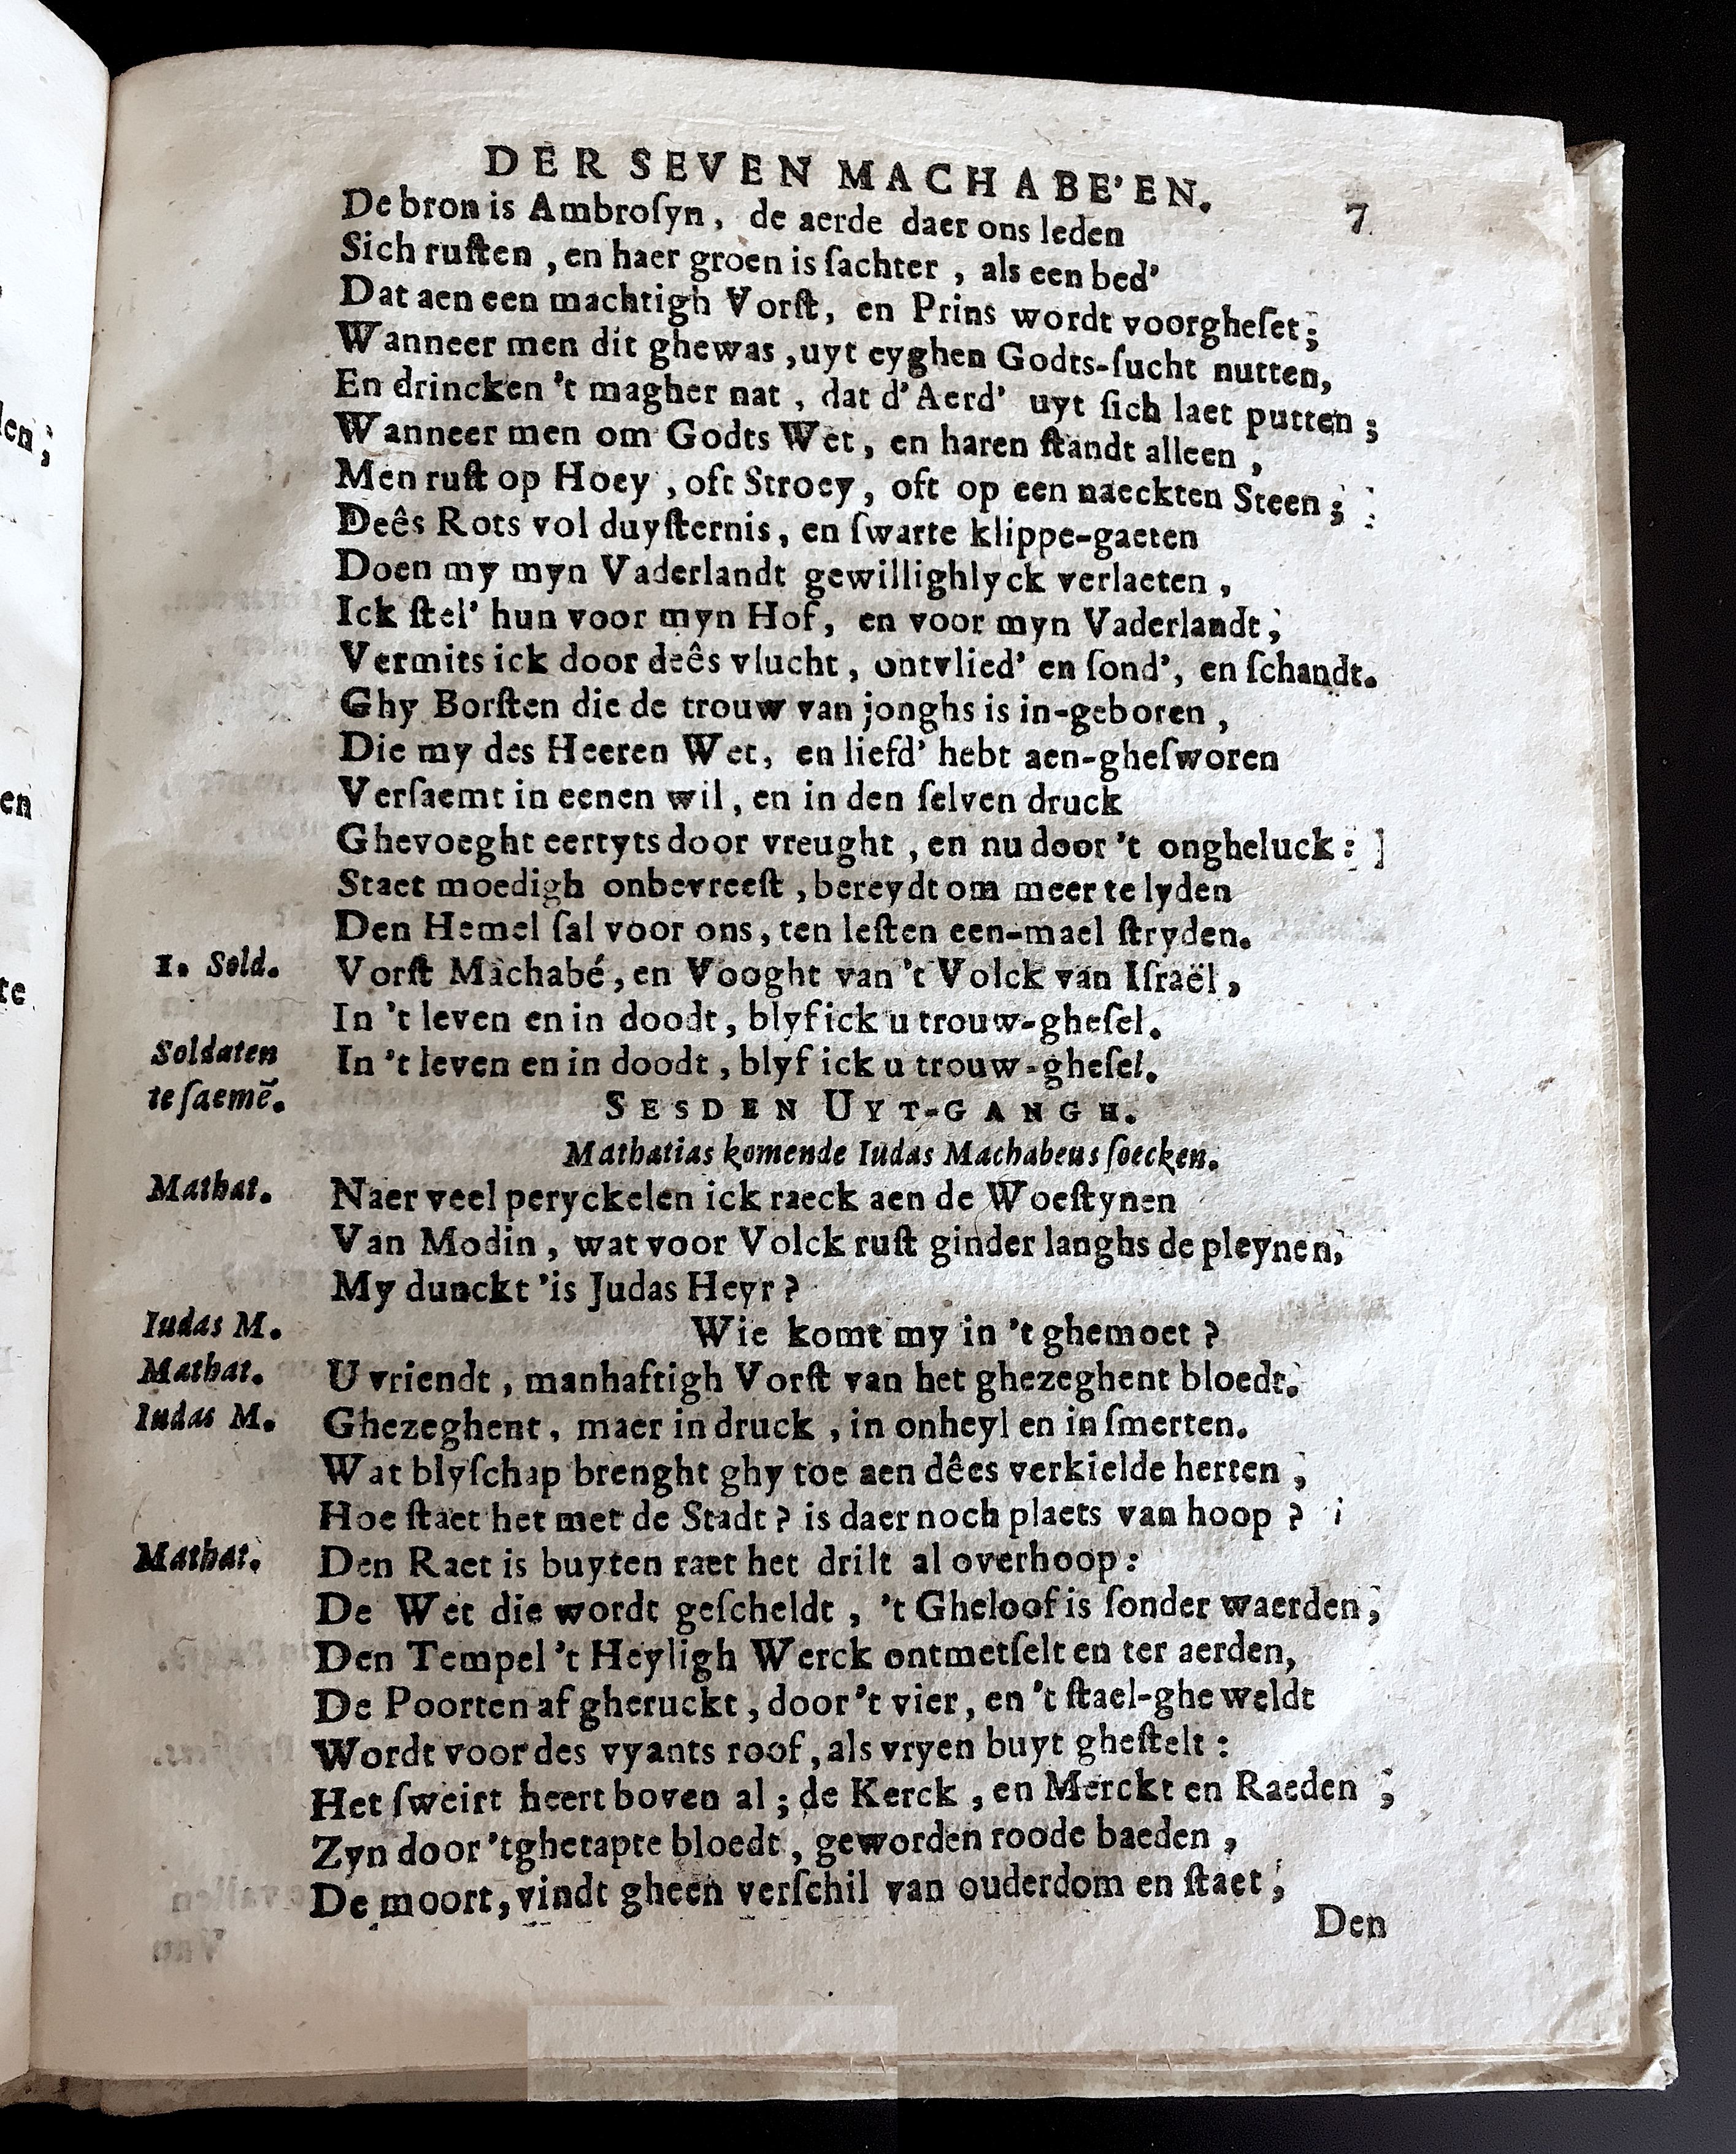 DER SEVEN MACHABE'EN. 7
De bron is Ambroſyn, de aerde daer ons leden
Sich ruſten, en haer groen is ſachter, als een bed'
Dat aen een machtigh Vorſt, en Prins wordt voorgheſet;
Wanneer men dit ghewas, uyt eyghen Godts-ſucht nutten,
En drincken 't magher nat, dat d'Aerd' uyt ſich laet putten;
Wanneer men om Godts Wet, en haren ſtandt alleen,
Men ruſt op Hoey, oft Stroey, oft op een naeckten Steen;
Deês Rots vol duyſternis, en ſwarte klippe-gaeten
Doen my myn Vaderlandt gewillighlyck verlaeten,
Ick ſtel' hun voor myn Hof, en voor myn Vaderlandt;
Vermits ick door deês vlucht, ontvlied' en ſond', en ſchandt.
Ghy Borſten die de trouw van jonghs is in-geboren,
Die my des Heeren Wet, en liefd' hebt aen-gheſworen
Verſaemt in eenen wil, en in den ſelven druck
Ghevoeght eertyts door vreught, en nu door 't ongheluck:
Staet moedigh onbevreeſt, bereydt om meer te lyden
Den Hemel ſal voor ons, ten leſten een-mael ſtryden.
1. Sold. Vorſt Machabé, en Vooght van 't Volck van Iſraël,
In 't leven en in doodt, blyf ick u trouw-gheſel.
Soldaten In 't leven en in doodt, blyf ick u trouw-gheſel.
te ſaemē.
SESDEN UYT-GANGH.
Mathatias komende Iudas Machabeus ſoecken.
Mathat. Naer veel peryckelen ick raeck aen de Woeſtynen
Van Modin, wat voor Volck ruſt ginder langhs de pleynen,
My dunckt 'is Judas Heyr?
Iudas M. Wie komt my in 't ghemoet?
Mathat. U vriendt, manhaftigh Vorſt van het ghezeghent bloedt.
Iudas M. Ghezeghent, maer in druck, in onheyl en in ſmerten.
Wat blyſchap brenght ghy toe aen dêes verkielde herten;
Hoe ſtaet het met de Stadt? is daer noch plaets van hoop?
Mathat. Den Raet is buyten raet het drilt al overhoop:
De Wet die wordt geſcheldt, 't Gheloof is ſonder waerden;
Den Tempel 't Heyligh Werck ontmetſelt en ter aerden,
De Poorten af gheruckt, door 't vier, en 't ſtael-ghe weldt
Wordt voor des vyants roof, als vryen buyt gheſtelt:
Het ſweirt heert boven al; de Kerck, en Merckt en Raeden;
Zyn door 'tghetapte bloedt, geworden roode baeden,
De moort, vindt gheen verſchil van ouderdom en ſtaet;
Den